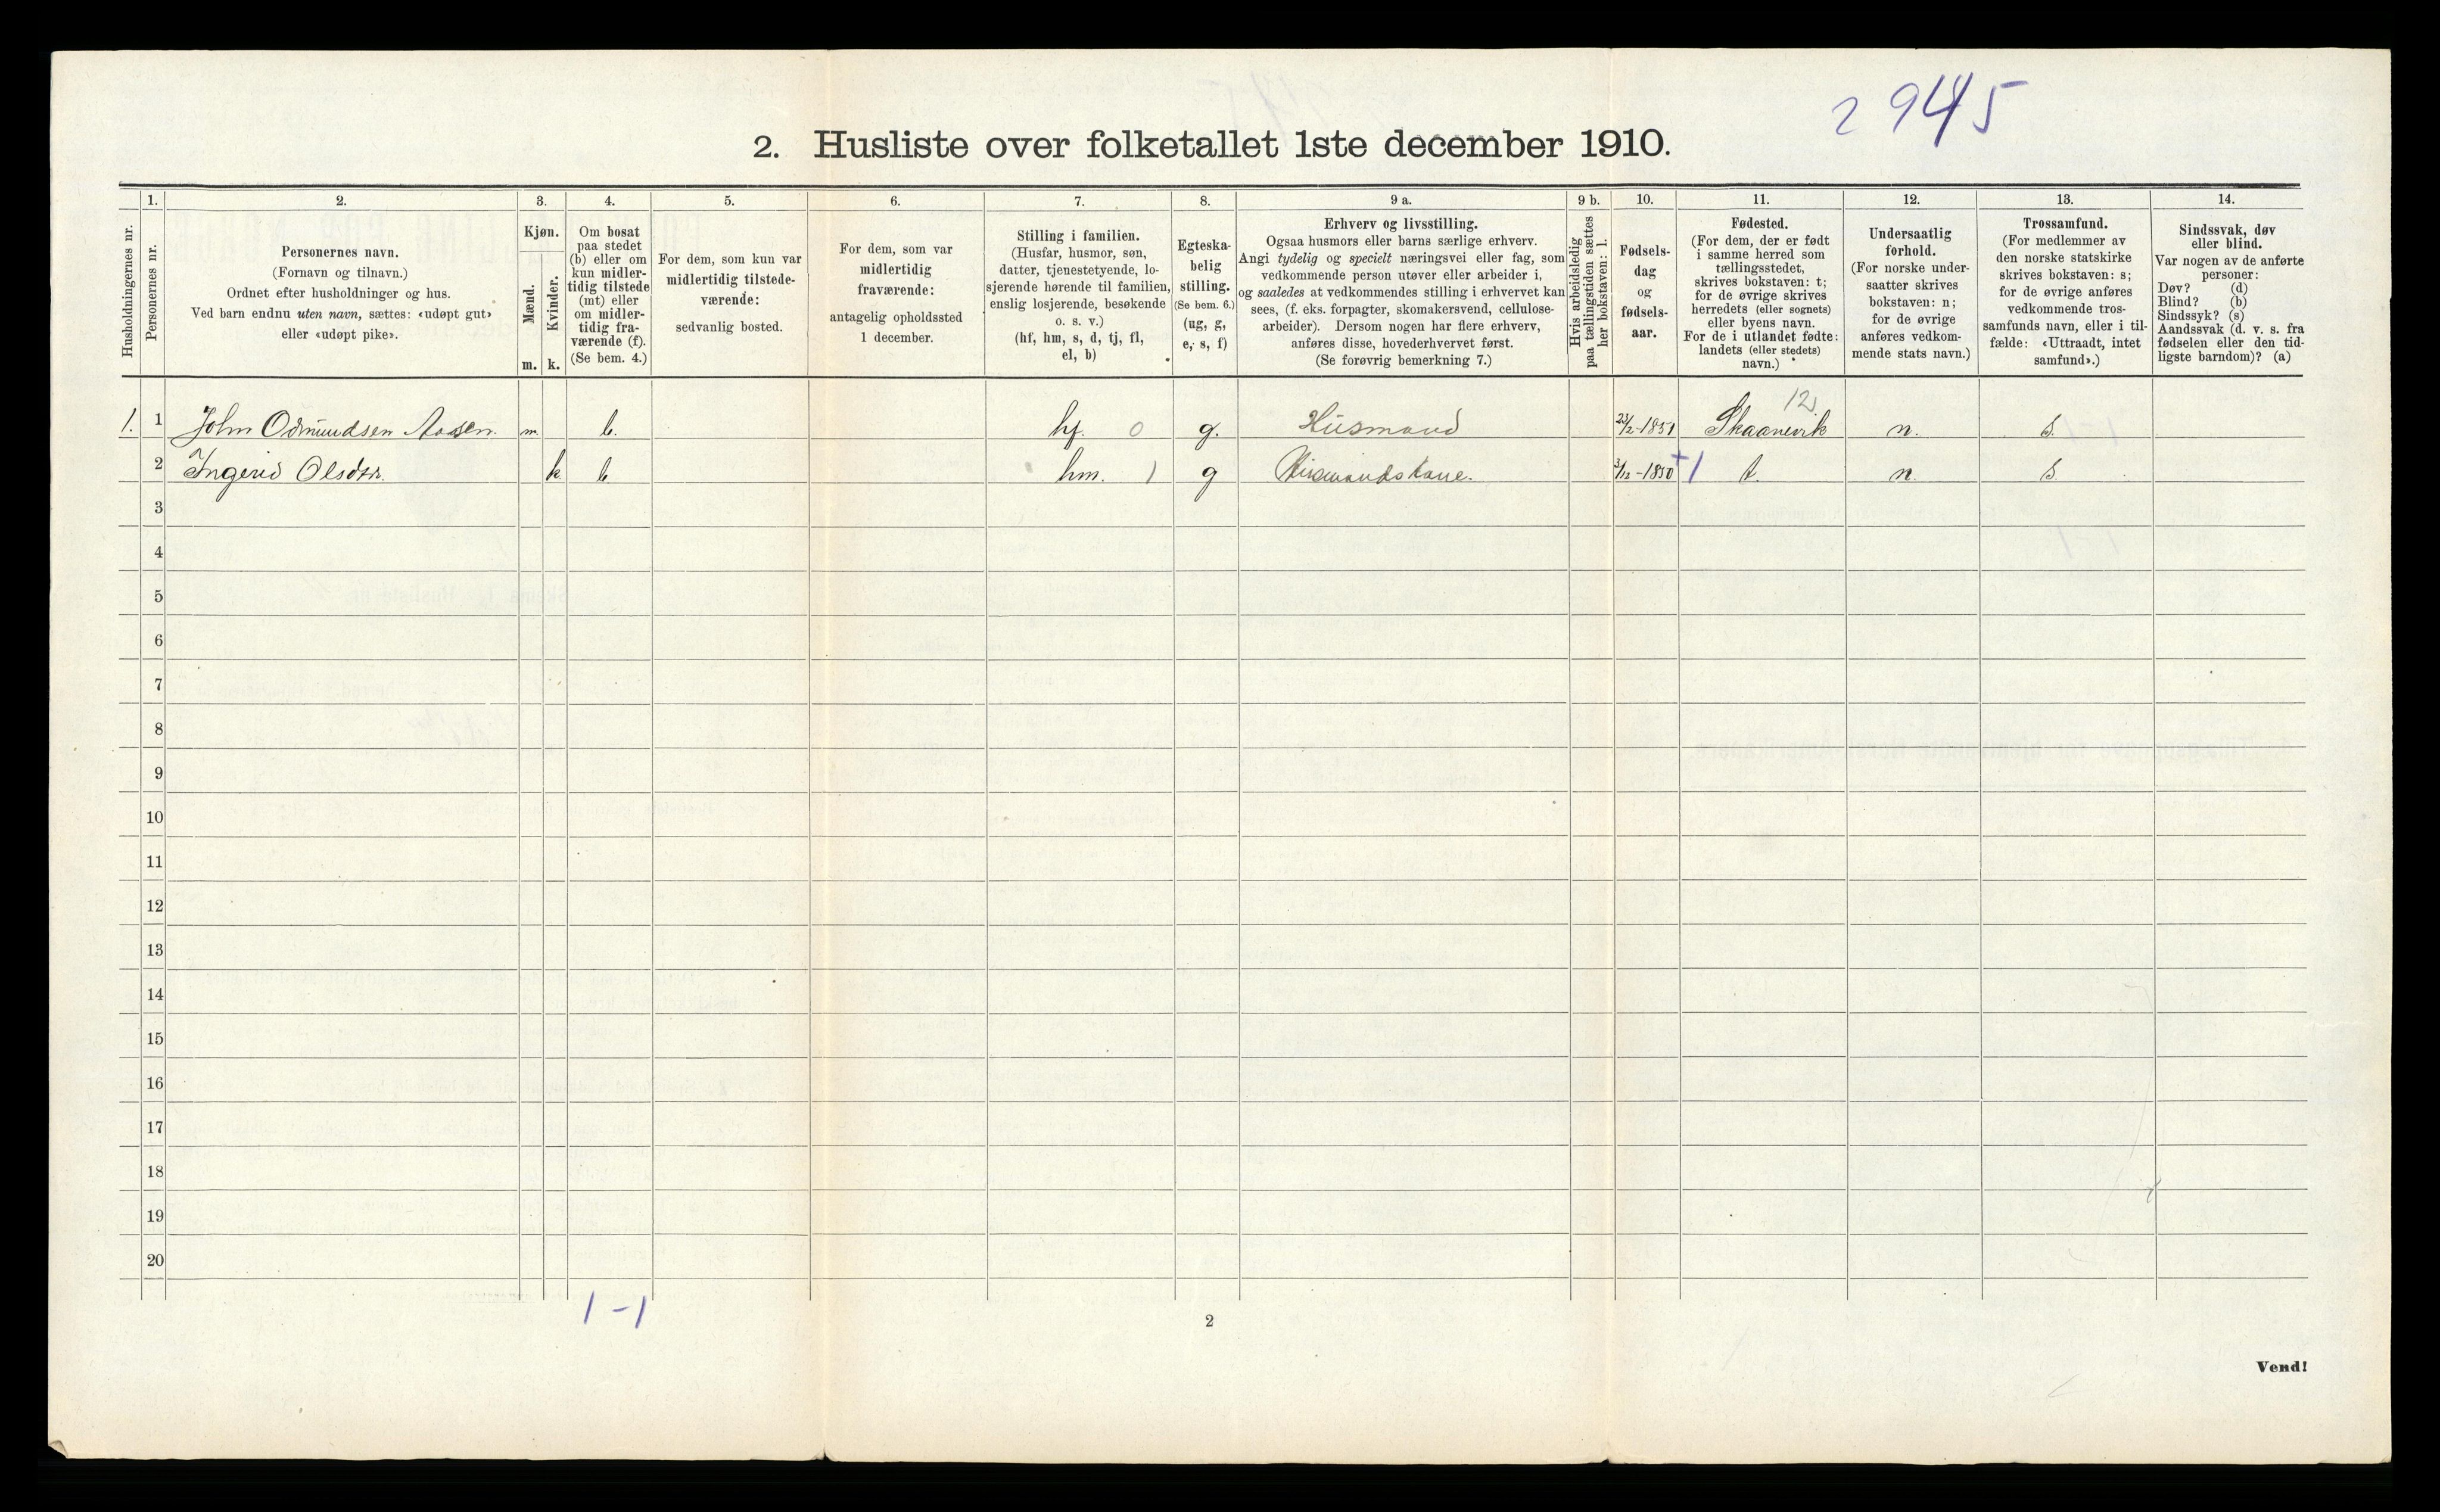 2 945
2. Husliste over folketallet 1ste december 1910.
1. 2. 3. 4. 5. 6. 7. 8. 9 a. 9 b. 10. 11. 12. 13. 14.
Husholdningernes nr.
Personernes nr.
Personernes navn.
(Fornavn og tilnavn.)
Ordnet efter husholdninger og hus.
Ved barn endnu uten navn, sættes: «udøpt gut»
eller «udøpt pike».
Kjøn.
Mænd.
Kvinder.
m. k.
Om bosat
paa stedet
(b) eller om
kun midler-
tidig tilstede
(mt) eller
om midler-
tidig fra-
værende (f).
(Se bem. 4.)
For dem, som kun var
midlertidig tilstede-
værende:
sedvanlig bosted.
For dem, som var
midlertidig
fraværende:
antagelig opholdssted
1 december.
Stilling i familien.
(Husfar, husmor, søn,
datter, tjenestetyende, lo-
sjerende hørende til familien,
enslig losjerende, besøkende
o. s. v.)
(hf, hm, s, d, tj, fl,
el, b)
Egteska-
belig
stilling.
(Se bem. 6.)
(ug, g,
e, s, f)
Erhverv og livsstilling.
Ogsaa husmors eller barns særlige erhverv.
Angi tydelig og specielt næringsvei eller fag, som
vedkommende person utøver eller arbeider i,
og saaledes at vedkommendes stilling i erhvervet kan
sees, (f. eks. forpagter, skomakersvend, cellulose-
arbeider). Dersom nogen har flere erhverv,
anføres disse, hovederhvervet først.
(Se forøvrig bemerkning 7.)
Hvis arbeidsledig
paa tællingstiden sættes
her bokstaven: l.
Fødsels-
dag
og
fødsels-
aar.
Fødested.
(For dem, der er født
i samme herred som
tællingsstedet,
skrives bokstaven: t;
for de øvrige skrives
herredets (eller sognets)
eller byens navn.
For de i utlandet fødte:
landets (eller stedets)
navn.)
Undersaatlig
forhold.
(For norske under-
saatter skrives
bokstaven: n;
for de øvrige
anføres vedkom-
mende stats navn.)
Trossamfund.
(For medlemmer av
den norske statskirke
skrives bokstaven: s;
for de øvrige anføres
vedkommende tros-
samfunds navn, eller i til-
fælde: «Uttraadt, intet
samfund».)
Sindssvak, døv
eller blind.
Var nogen av de anførte
personer:
Døv? (d)
Blind? (b)
Sindssyk? (s)
Aandssvak (d. v. s. fra
fødselen eller den tid-
ligste barndom)? (a)
12
1. 1 John Odmundsen Aasen. m. b. hf. 0 g. Husmand 23/2-1851 Skaanevik n. s.
2 Ingerid Olsdtr. k b hm. 1 g Husmandskone. 3/12-1850 +1 t. n. s.
3
4
5
6
7
8
9
10
11
12
13
14
15
16
17
18
19
20
1-1
2
Vend!